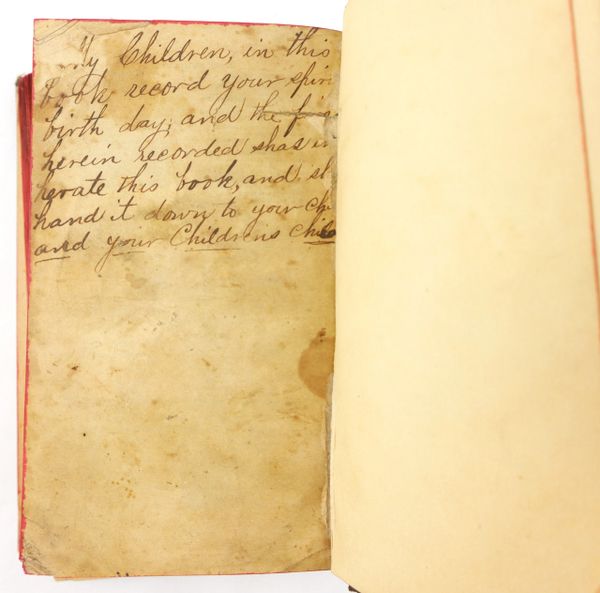 My Children, in this
book record your spiri
birth day; and the fi
herein recorded shas in
herate this book, and sh
hand it down to your Ch
and your Childrens Child